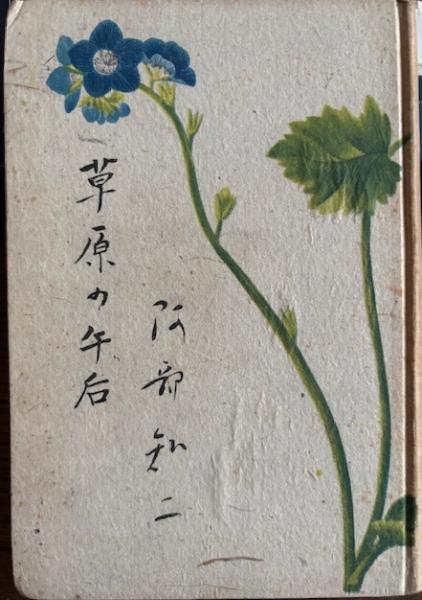 草原の午后
阿部知二